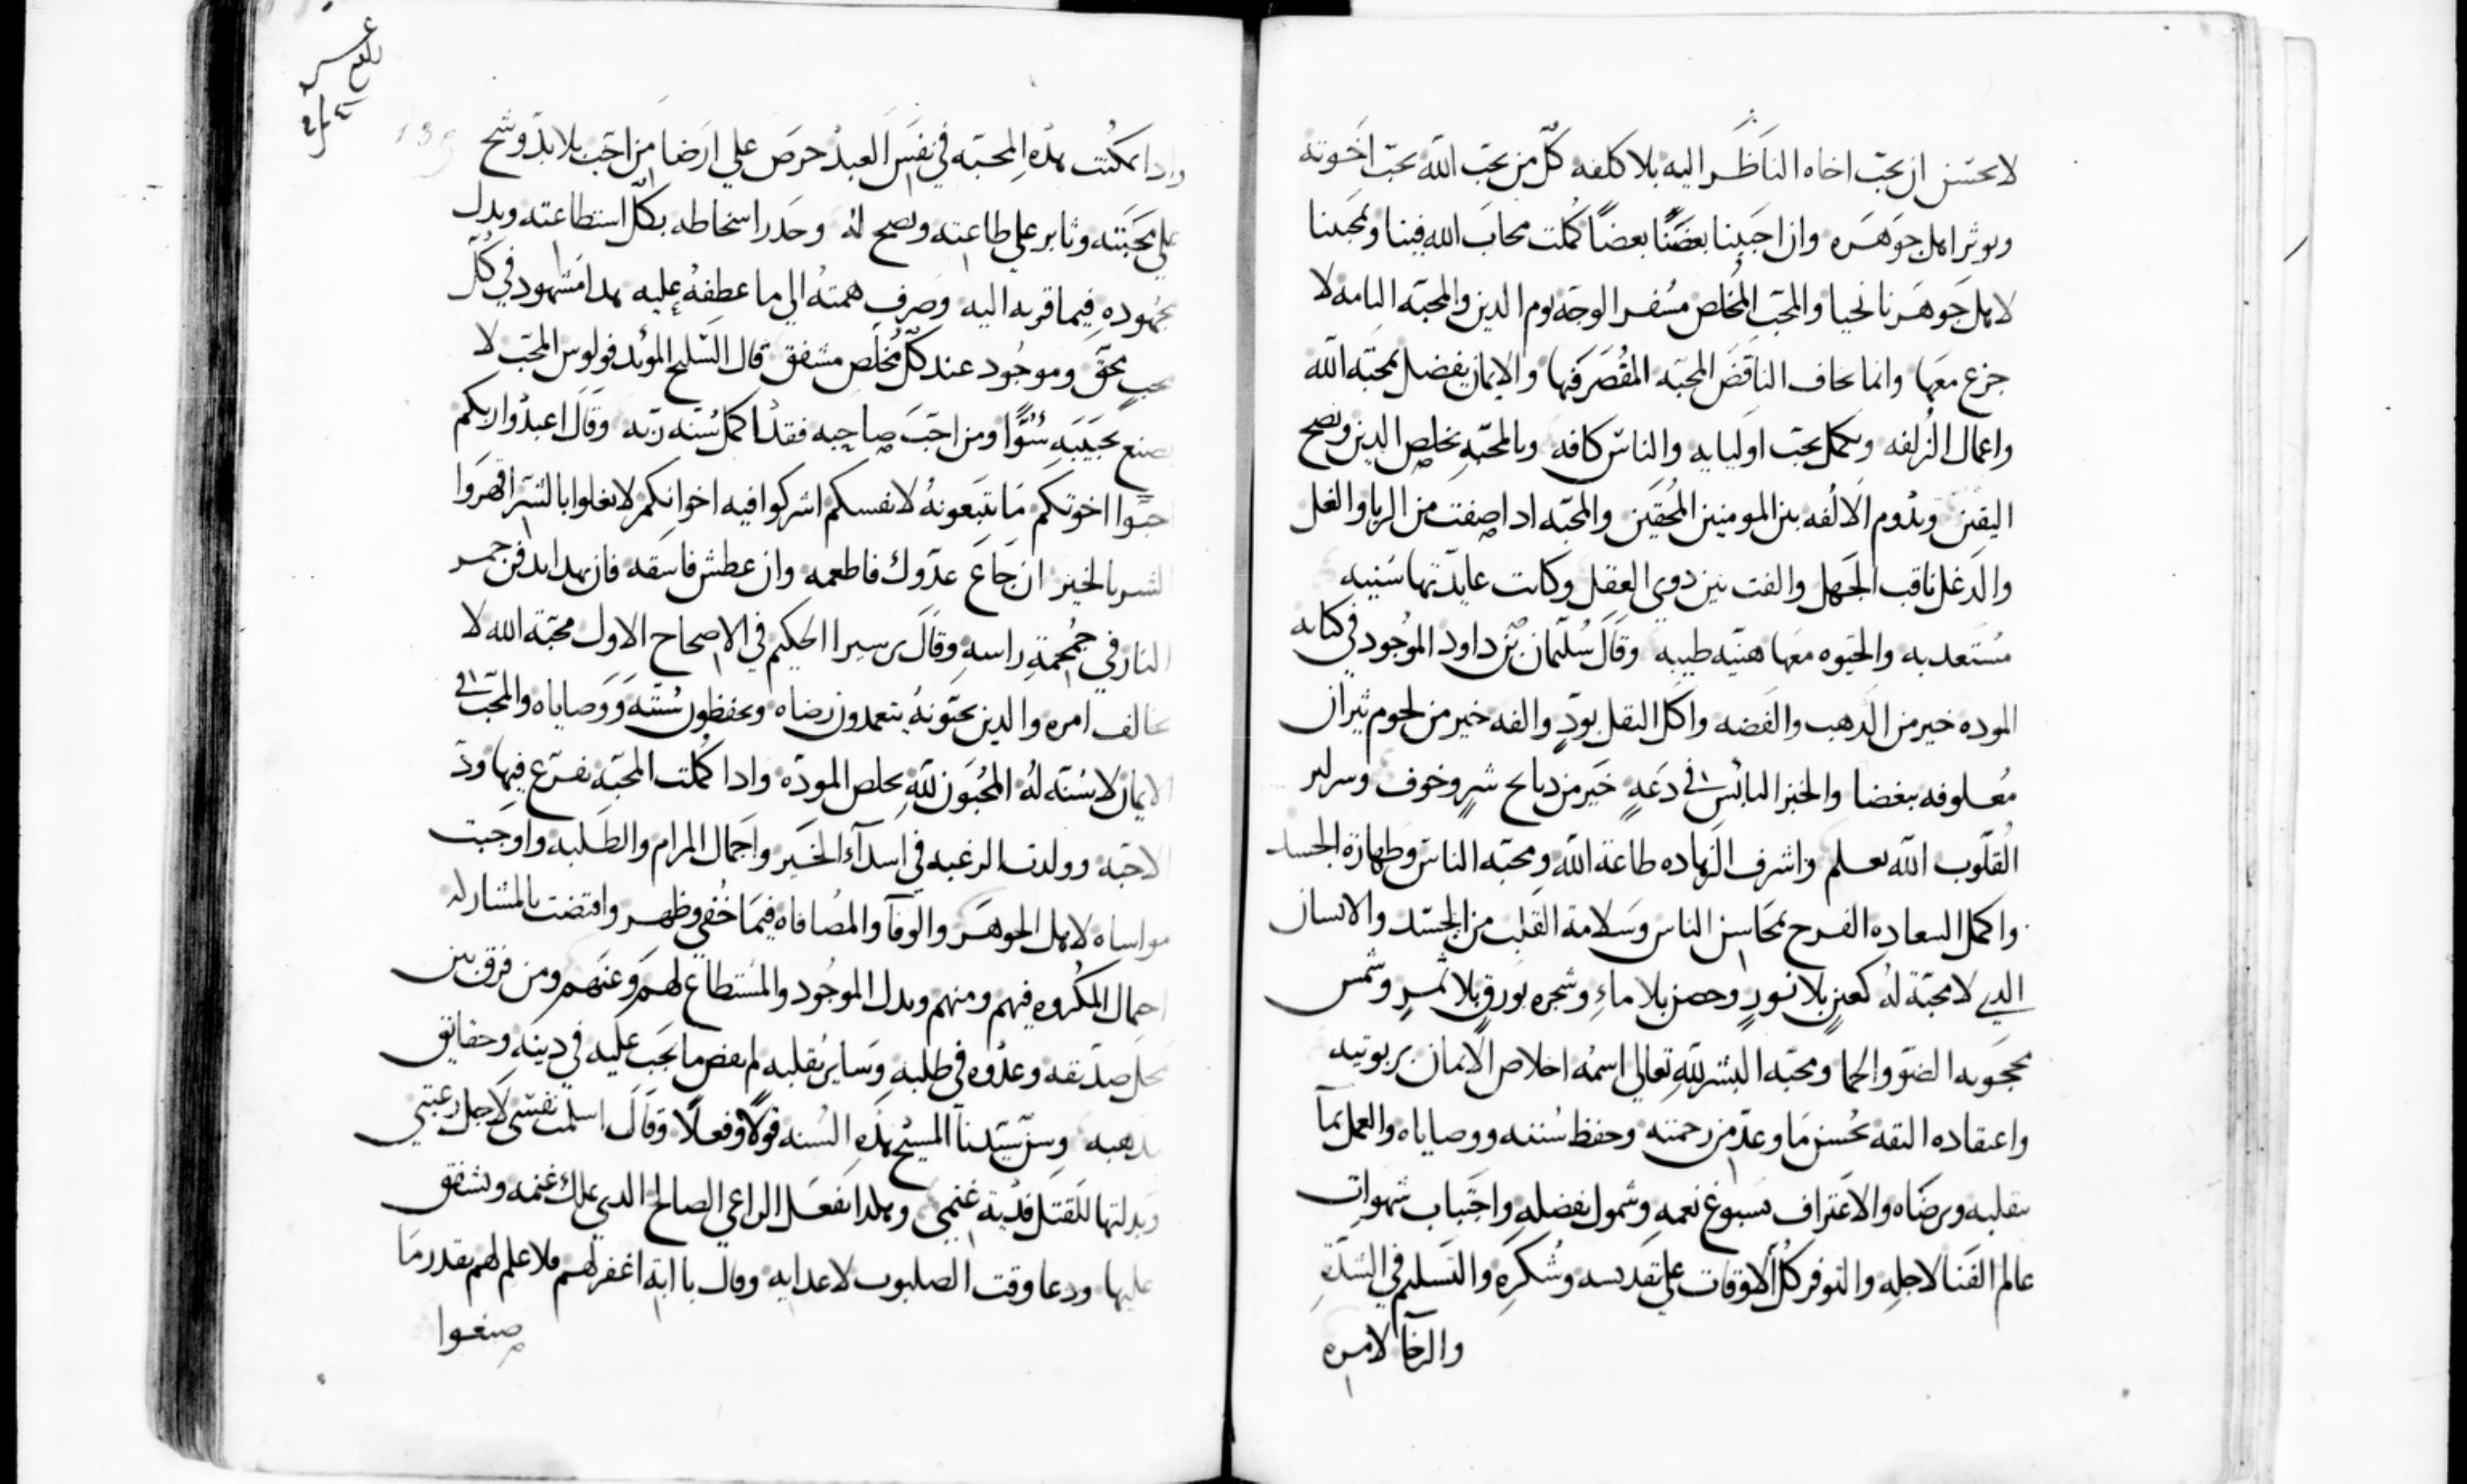 لا يحسن ان يحب اخاه الناظر اليه بلا كلفه كل من يحب الله يحب اخوته
ويوثر اهل جوهره وان احببنا بعضنا بعضا كملت محاب الله فينا ولمحبتنا
لاهل جوهرنا نحيا والمحب المخلص مسفر الوجه يوم الدين والمحبه التامه لا
جزع معها وانما يخاف الناقض المحبه المقصر فيها والايمان يفضل بمحبة الله
واعمال الزلفه ويكمل بحب اوليايه والناس كافه وبالمحبه يخلص الدين ويصح
اليقين ويدوم الالفه بين المومنين المحقين والمحبه ادا صفت من الريا والغل
والدغل ناقب الجهل والفت بين دوي العقل وكانت عايدتها سنيه
مستعدبه والحيوه معها هنيه طيبه وقال سليمان بن داود الموجود في كتابه
الموده خير من الدهب والفضه واكل البقل بود والفه خير من لحوم ثيران
معلوفه ببغضا والخبز اليابس في دعه خير من دبايح شر وخوف وسراير
القلوب الله يعلم واشرف الزهاده طاعة الله ومحبة الناس وطهارة الجسد
واكمل السعاده الفرح بمحاسن الناس وسلامة القلب من الحسد والانسان
الدي لا محبة له كعين بلا نور وحصن بلا ماء وشجره بورق بلا ثمر وشمس
محجوبه الضو والحما ومحبه البشر لله تعالي اسمه اخلاص الايمان بربوبيته
واعتقاده الثقه بحسن ما وعد من رحمته وحفظ سننه ووصاياه والعمل بما
يقلبه ويرضاه والاعتراف بسبوغ نعمه وشمول بفضله واجتناب شهوات
عالم الفنا لاجله والتوفر كل الاوقات علي تقديسه وشكره والتسليم في الشدة
والرخا لامره
وادا تمكنت هذه المحبه في نفس العبد حرص علي ارضا من احب بلا بد وشح
علي محبته وثابر علي طاعته ونصح له وحدر اسخاطه بكل استطاعته وبدل
مجهوده فيما قربه اليه وصرف همته الي ما عطفه عليه هدا مشهود في كل
محب محق وموجود عند كل مخلص مشفق قال السليح المويد فولوس المحب لا
يصنع بحبيبه سوا ومن احب صاحبه فقد اكمل سنة ربه وقال اعبدوا ربكم
احبوا اخوتكم ما تبتغونه لانفسكم اشركوا فيه اخوانكم لا تغلوا بالشر اقهروا
الشر بالخير ان جاع عدوك فاطعمه وان عطش فاسقه فان بهدا تدفن جمر
النار في جمجمة راسه وقال برسيرا الحكيم في الاصحاح الاول محبة الله لا
تخالف امره والدين يحبونه يتعمدون رضاه ويحفظون سنته ووصاياه والمحب في
الايمان لا سنه له المحبون لله يخلص الموده وادا كملت المحبه تفرع فيها ود
الاحبه وولدت الرغبه في اسدآء الخير واجمال المرام والطلبه واوجبت
مواساه لاهل الجوهر والوفآ والمصافاه فيما خفي وظهر واقتضت بالمشاركه
احتمال المكروه فيهم ومنهم وبدل الموجود والمستطاع لهم وعنهم ومن فرق بين
محل صديقه وعدوه في طلبه وساير بقلبه لم يقض ما يجب عليه في دينه وحقايق
مدهبه وسن سيدنا المسيح بهذه السنه قولا وفعلا وقال اسلمت نفسي لاجل رعيتي
وبدلتها للقتل فدية غنمي وهكدا يفعل الراعي الصالح الدي يملك غنمه ويشفق
عليها ودعا وقت الصلبوت لاعدايه وقال يا ابة اغفر لهم فلا علم لهم بقدر ما
صنعوا